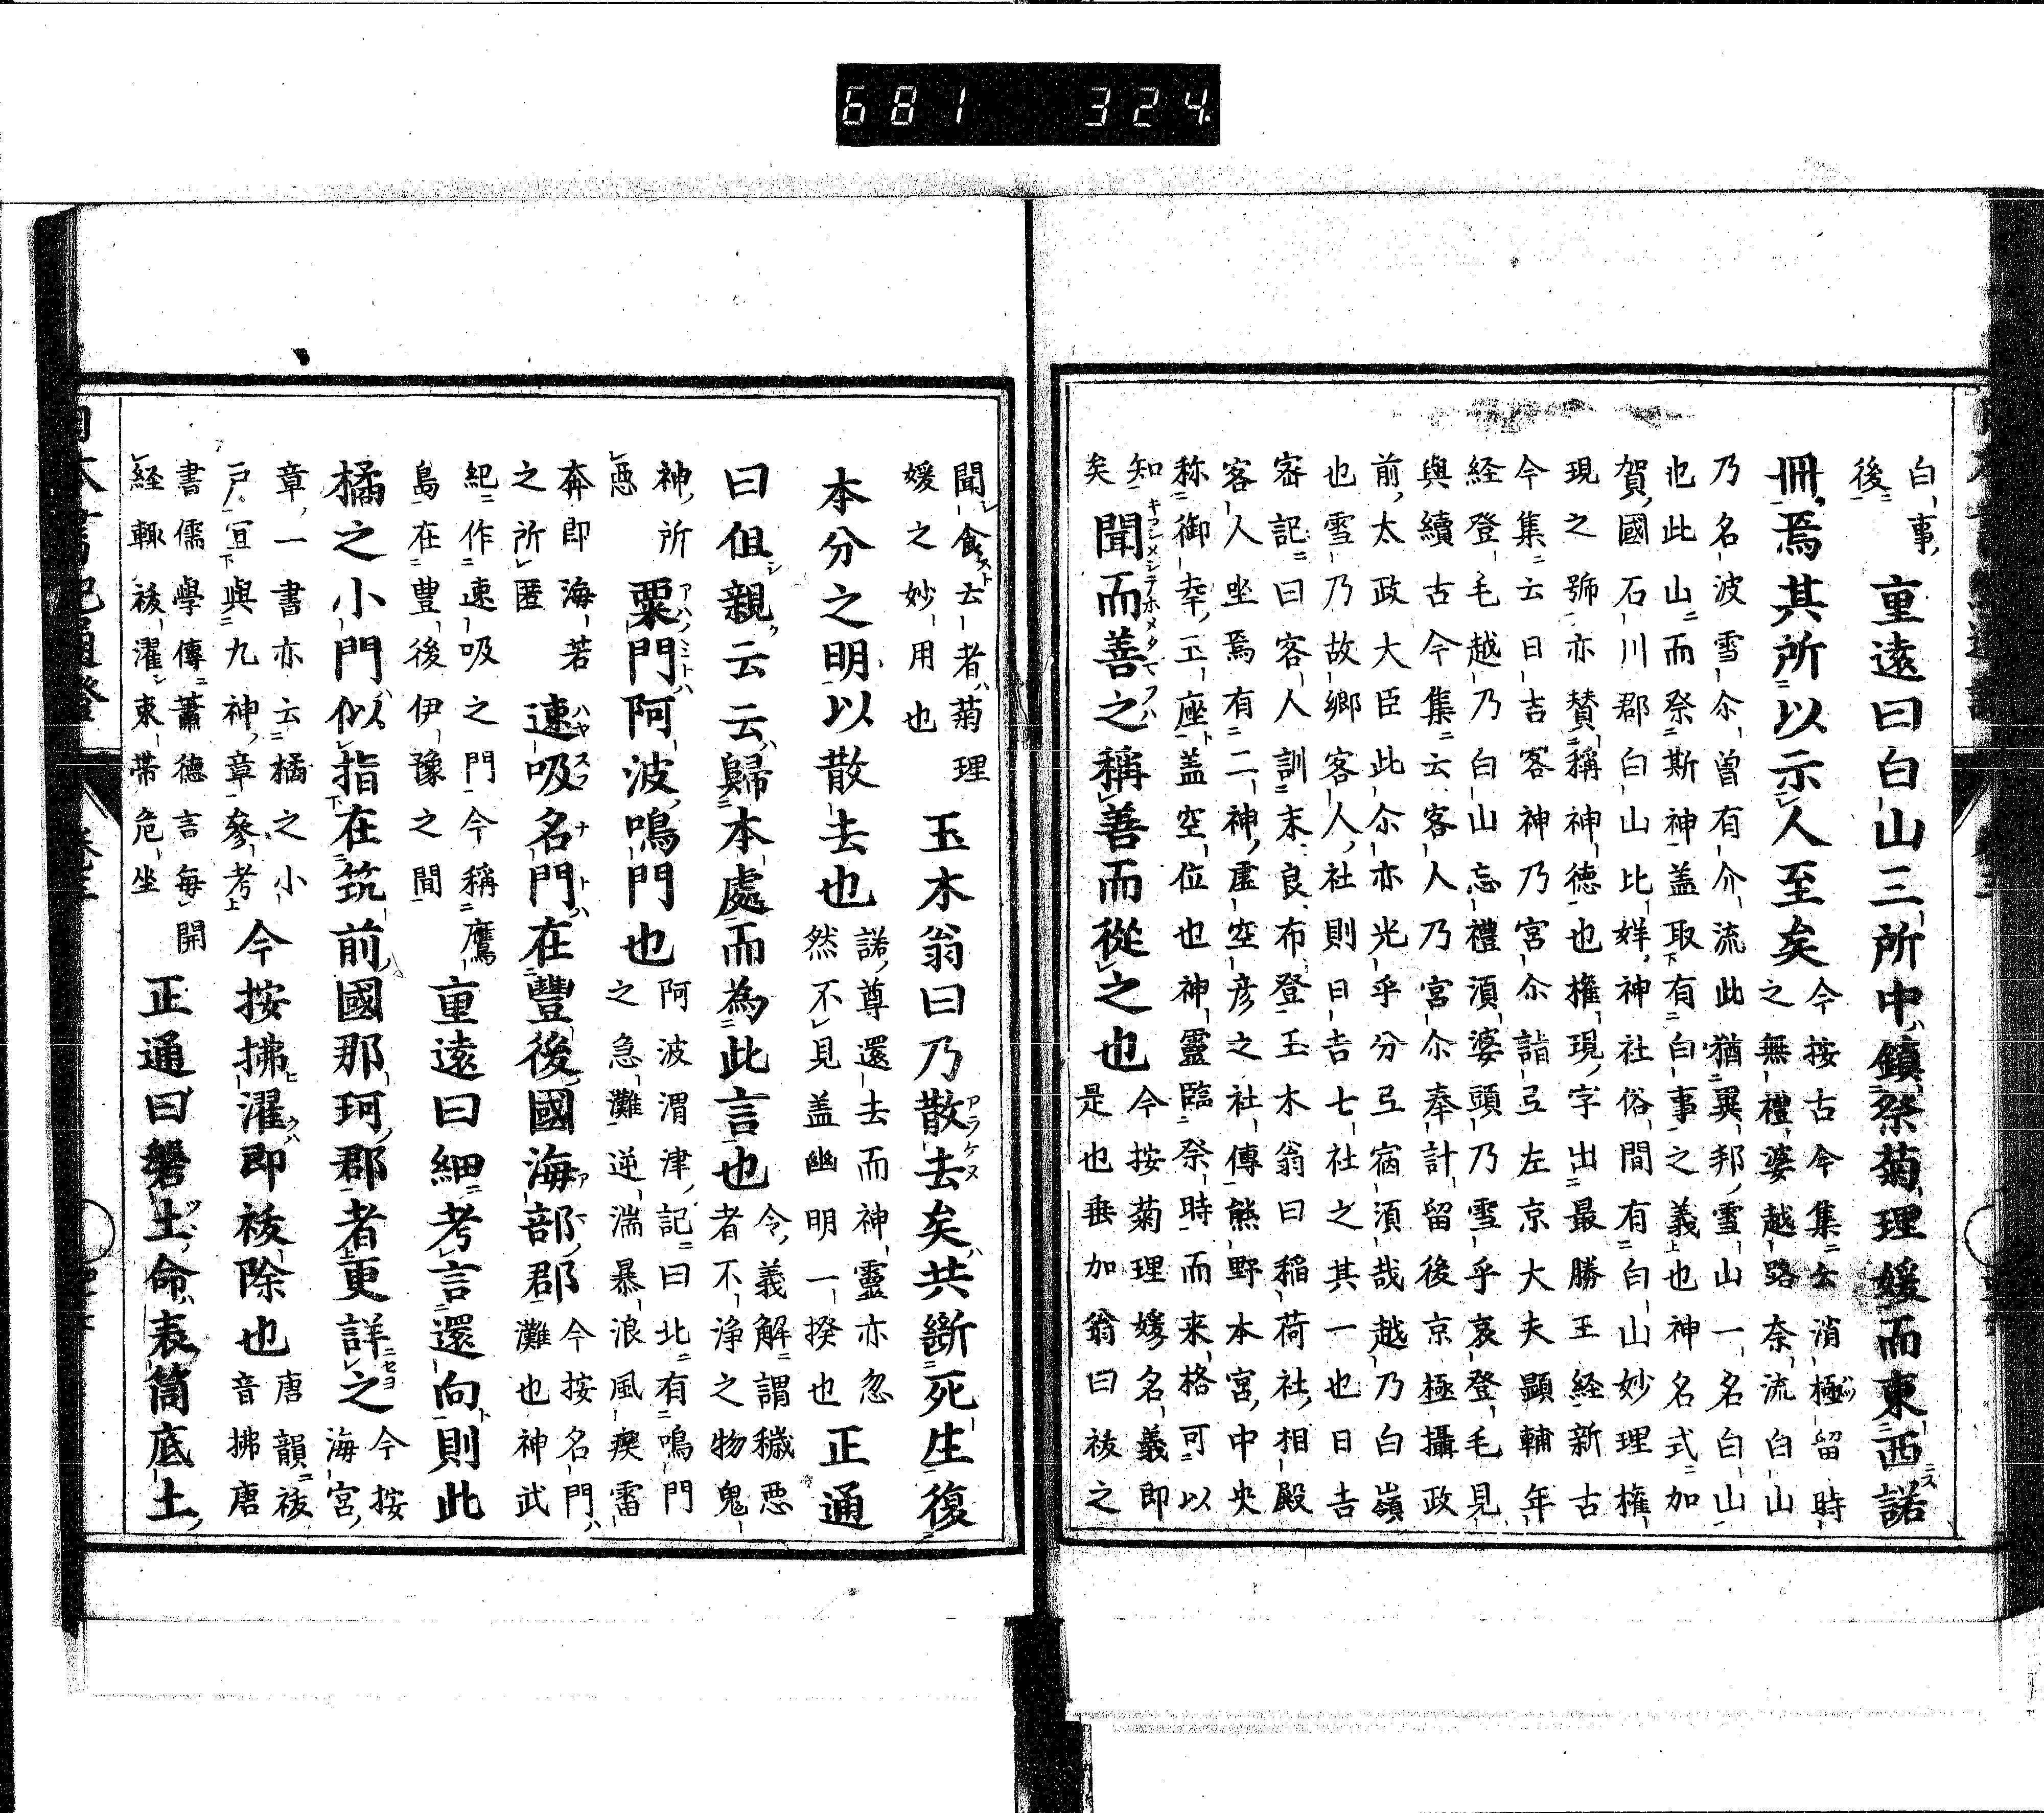 681 324
白事
後
重遠曰白山三所中鎮祭菊理媛而東西諾
冊焉其所以示人至矣
今按古今集云消極留時
之無禮婆越路奈流白山
乃名波雪尒曽有介流此猶異邦雪山一名白山
也此山而祭斯神盖取有白事之義也神名式加
賀國石川郡白山比咩神社俗間有白山妙理權
現之號亦賛稱神德也權現字出最勝王経新古
今集云日吉客神乃宮尒詣弖左京大夫顕輔年
経登毛越乃白山忘禮湏婆頭乃雪乎哀登毛見
與續古今集云客人乃宮尒奉計留後京極攝政
前太政大臣此尒亦光乎分弖宿湏哉越乃白嶺
也雪乃故郷客人社則日吉七社之其一也日吉
宻記曰客人訓末良布登玉木翁曰稲荷社相殿
客人坐焉有二神虚空彦之社傳熊野本宮中央
称御幸一座盖空位也神靈臨祭時而来格可以
知
矣
聞而善之稱善而從之也
今按菊理媛名義即
是也垂加翁曰祓之
聞食去者菊理
媛之妙用也
玉木翁曰乃散去矣共斷死生復
本分之明以散去也
諾尊還去而神靈亦忽
然不見盖幽明一揆也
正通
曰但親云云歸本處而為此言也
令義解謂穢悪
者不浄之物鬼
神所
悪
粟門阿波鳴門也
阿波渭津記曰北有鳴門
之急灘逆湍暴浪風瘼雷
奔即海若
之所匿
速吸名門在豐後國海部郡
今按名門
灘也神武
紀作速吸之門今稱鷹
島在豊後伊豫之間
重遠曰細考言還向則此
橘之小門似指在筑前國那珂郡者更詳之
今按
海宮
章一書亦云橘之小
戸宜與九神章參考
今按拂濯即祓除也
唐韻祓
音拂唐
書儒學傳蕭德言毎開
経輙祓濯束帯危坐
正通曰磐土命表筒底土